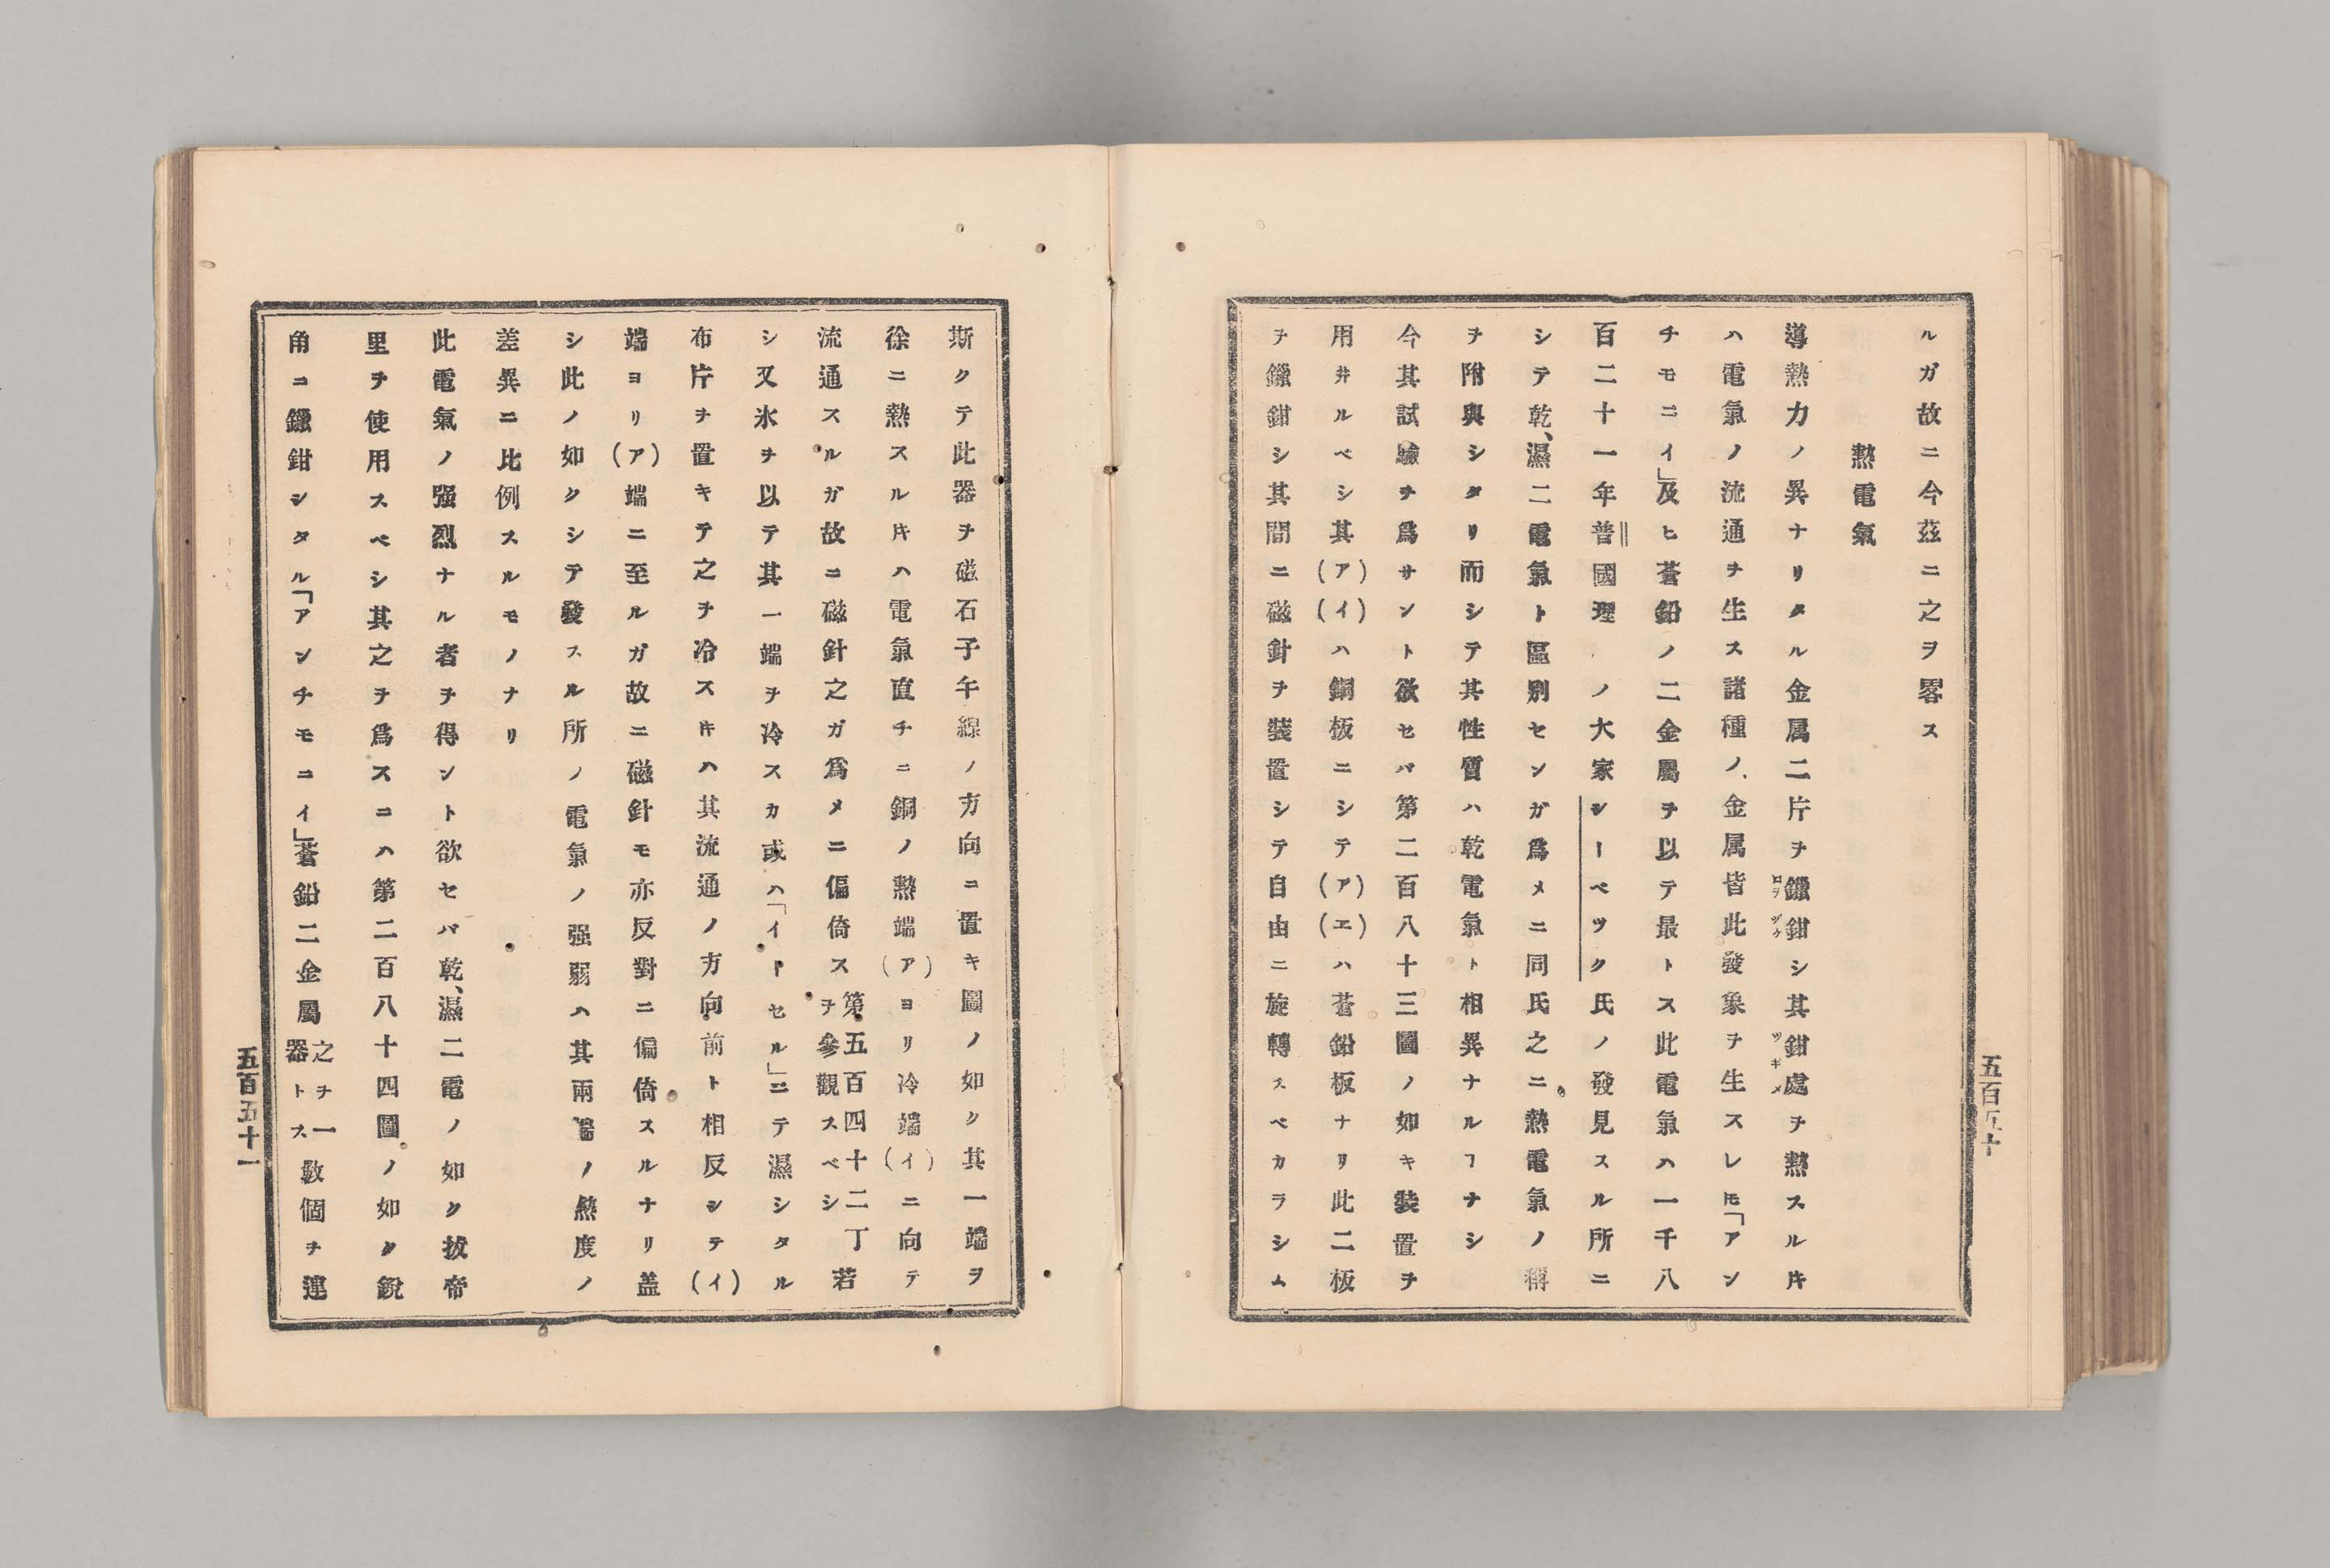 ルガ故ニ今茲ニ之ヲ畧ス
熱電氣
導熱力ノ異ナリタル金属二片ヲ鑞鉗シ其鉗處ヲ熱スル𪜈
ロヲ ヅケ ツギメ
ハ電氣ノ流通ヲ生ス諸種ノ、金属皆此發象ヲ生スレ𪜈「アン
チモニイ」及ヒ蒼鉛ノ二金屬ヲ以テ最トス此電氣ハ一千八
百二十一年普國理ノ大家シーベツク氏ノ發見スル所ニ
シテ乾、濕二電氣ト區別センガ爲メニ同氏之ニ熱電氣ノ稱
ヲ附與シタリ而シテ其性質ハ乾電氣ト相異ナルヿナシ
今其試驗ヲ爲サント欲セバ第二百八十三圖ノ如キ裝置ヲ
用井ルベシ其(ア)(イ)ハ銅板ニシテ(ア)(エ)ハ蒼鉛板ナリ此二板
ヲ鑞鉗シ其間ニ磁針ヲ裝置シテ自由ニ旋轉スベカラシム
五百五十
斯クテ此器ヲ磁石子午線ノ方向ニ置キ圖ノ如ク其一端ヲ
徐ニ熱スル𪜈ハ電氣直チニ銅ノ熱端(ア)ヨリ冷端(イ)ニ向テ
流通スルガ故ニ磁針之ガ爲メニ偏倚ス第五百四十二丁ヲ參觀スベシ若
シ又氷ヲ以テ其一端ヲ冷スカ或ハ「イートセル」ニテ濕シタル
布片ヲ置キテ之ヲ冷ス𪜈ハ其流通ノ方向前ト相反シテ(イ)
端ヨリ(ア)端ニ至ルガ故ニ磁針モ亦反對ニ偏倚スルナリ盖
シ此ノ如クシテ發スル所ノ電氣ノ强弱ハ其兩端ノ熱度ノ
差異ニ比例スルモノナリ
此電氣ノ强烈ナル者ヲ得ント欲セバ乾、濕二電ノ如ク拔帝
里ヲ使用スベシ其之ヲ爲スニハ第二百八十四圖ノ如ク銳
角ニ鑞鉗シタル「アンチモニイ」蒼鉛二金屬之ヲ一器トス數個ヲ連
五百五十一